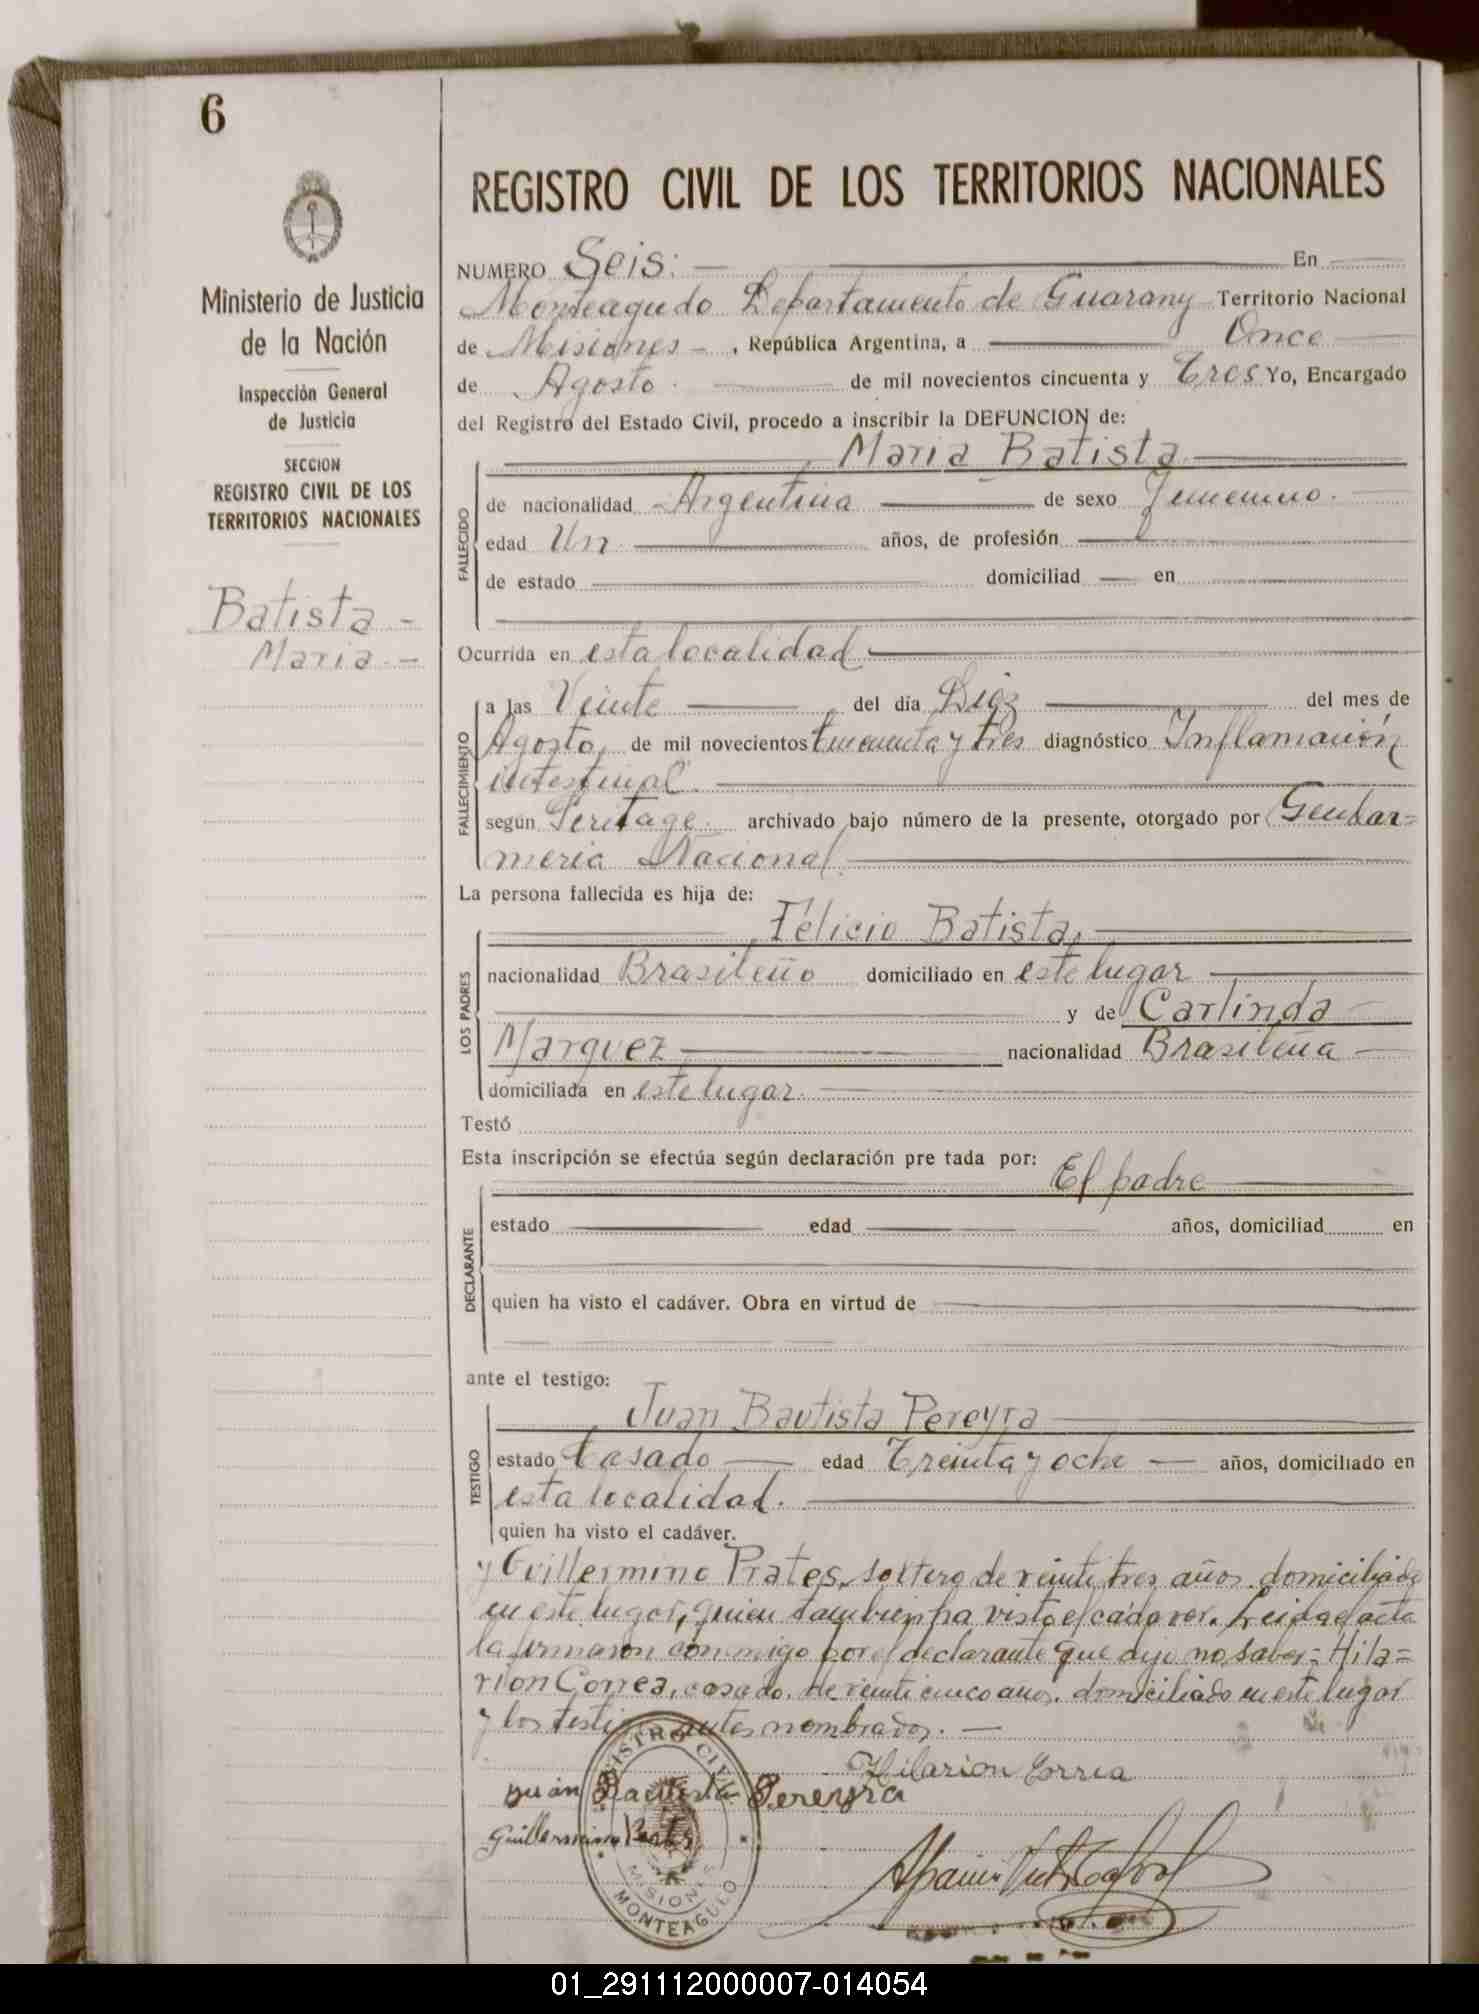 6
Ministerio de Justicia
de la Nación
Inspección General
de Justicia
SECCION
REGISTRO CIVIL DE LOS
TERRITORIOS NACIONALES
Batista -
Maria. -
REGISTRO CIVIL DE LOS TERRITORIOS NACIONALES
NUMERO Seis: En
Monteagudo Departamento de Guarany Territorio Nacional
de Misiones, República Argentina, a Once
de Agosto. de mil novecientos cincuenta y Tres Yo, Encargado
del Registro del Estado Civil, procedo a inscribir la DEFUNCION de:
Maria Batista
FALLECIDO
de nacionalidad Argentina de sexo Femenino.
edad Un años, de profesión
de estado domiciliad en
Ocurrida en esta localidad
FALLECIMIENTO
a las Veinte del día Diez del mes de
Agosto, de mil novecientos Cincuenta y tres diagnóstico Inflamación
intestinal.
según Peritage archivado bajo número de la presente, otorgado por Gendar=
meria Nacional
La persona fallecida es hija de:
Felicio Batista,
LOS PADRES
nacionalidad Brasileño domiciliado en este lugar
y de Carlinda
Marquez nacionalidad Brasileña
domiciliada en este lugar.
Testó
Esta inscripción se efectúa según declaración pre tada por: El padre
DECLARANTE
estado edad años, domiciliad en
quien ha visto el cadáver. Obra en virtud de
ante el testigo:
Juan Bautista Pereyra
TESTIGO
estado Casado edad Treinta y ocho años, domiciliado en
esta localidad.
quien ha visto el cadáver.
y Guillermino Prates, soltero de veinti tres años, domiciliado
en este lugar, quien tambien ha visto el cadaver. Leida el acta
la firmaron conmigo por el declarante que dijo no saber= Hila=
rion Correa, casado, de veinti cinco años, domiciliado en este lugar
y los testigos antes nombrados. —
Hilarion Correa
Juan Bautista Pereyra
Guillermino Prates
REGISTRO CIVIL
MISIONES
MONTEAGUDO
01_291112000007-014054